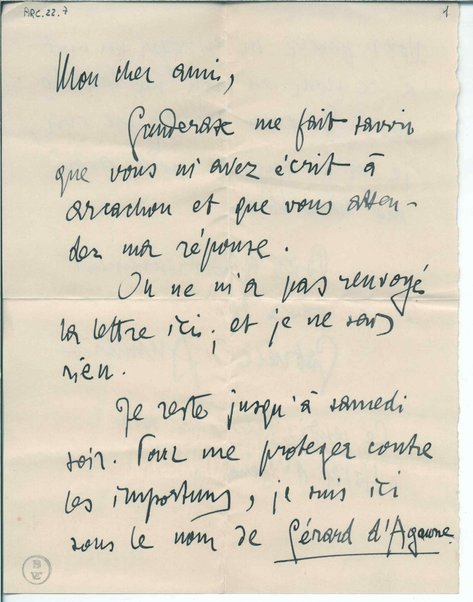 ARC.22.7
1
Mon cher ami,
Ganderax me fait savoir
que vous m'avez écrit à
Arcachon et que vous atten-
dez ma réponse.
On ne m'a pas renvoyé
la lettre ici ; et je ne sais
rien.
Je reste jusqu'à samedi
soir. Pour me protéger contre
les importuns, je suis ici
sous le nom de Gérard d'Agaune